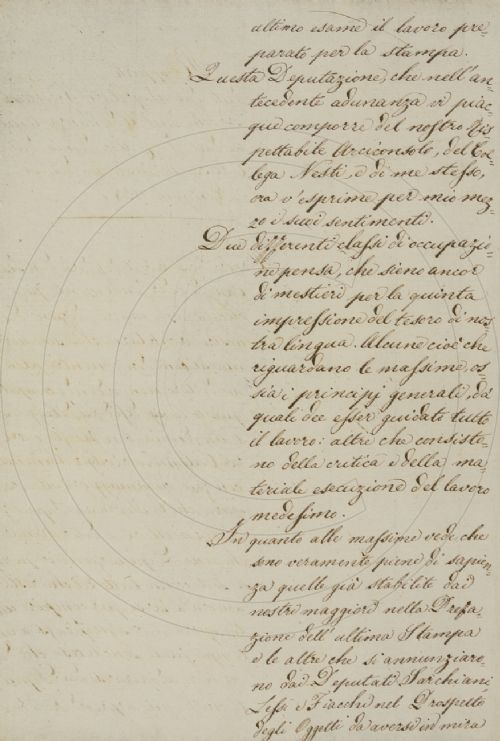 ultimo esame il lavoro pre=
parato per la stampa.
Questa Deputazione, che nell'an=
tecedente adunanza vi piac=
que comporre del nostro Ris=
pettabile Arciconsolo, del Col=
lega Nesti, e di me stesso,
ora v'esprime per mio mez=
zo i suoi sentimenti.
Due differenti classi di occupazio=
ne pensa, che sieno ancor
di mestieri per la quinta
impressione del tesoro di nos=
tra lingua. Alcune cioè che
riguardano le massime, os=
sia i principj generali, da
quali dee esser guidato tutto
il lavoro: altre che consisto=
no della critica e della ma=
teriale esecuzione del lavoro
medesimo.
In quanto alle massime vede che
sono veramente piene di sapien=
za quelle già stabilite dai
nostri maggiori nella Prefa=
zione dell'ultima Stampa
e le altre che si annunziaro=
no dai Deputati Sarchiani,
Lessi e Fiacchi nel Prospetto
degli Oggetti da aversi in mira